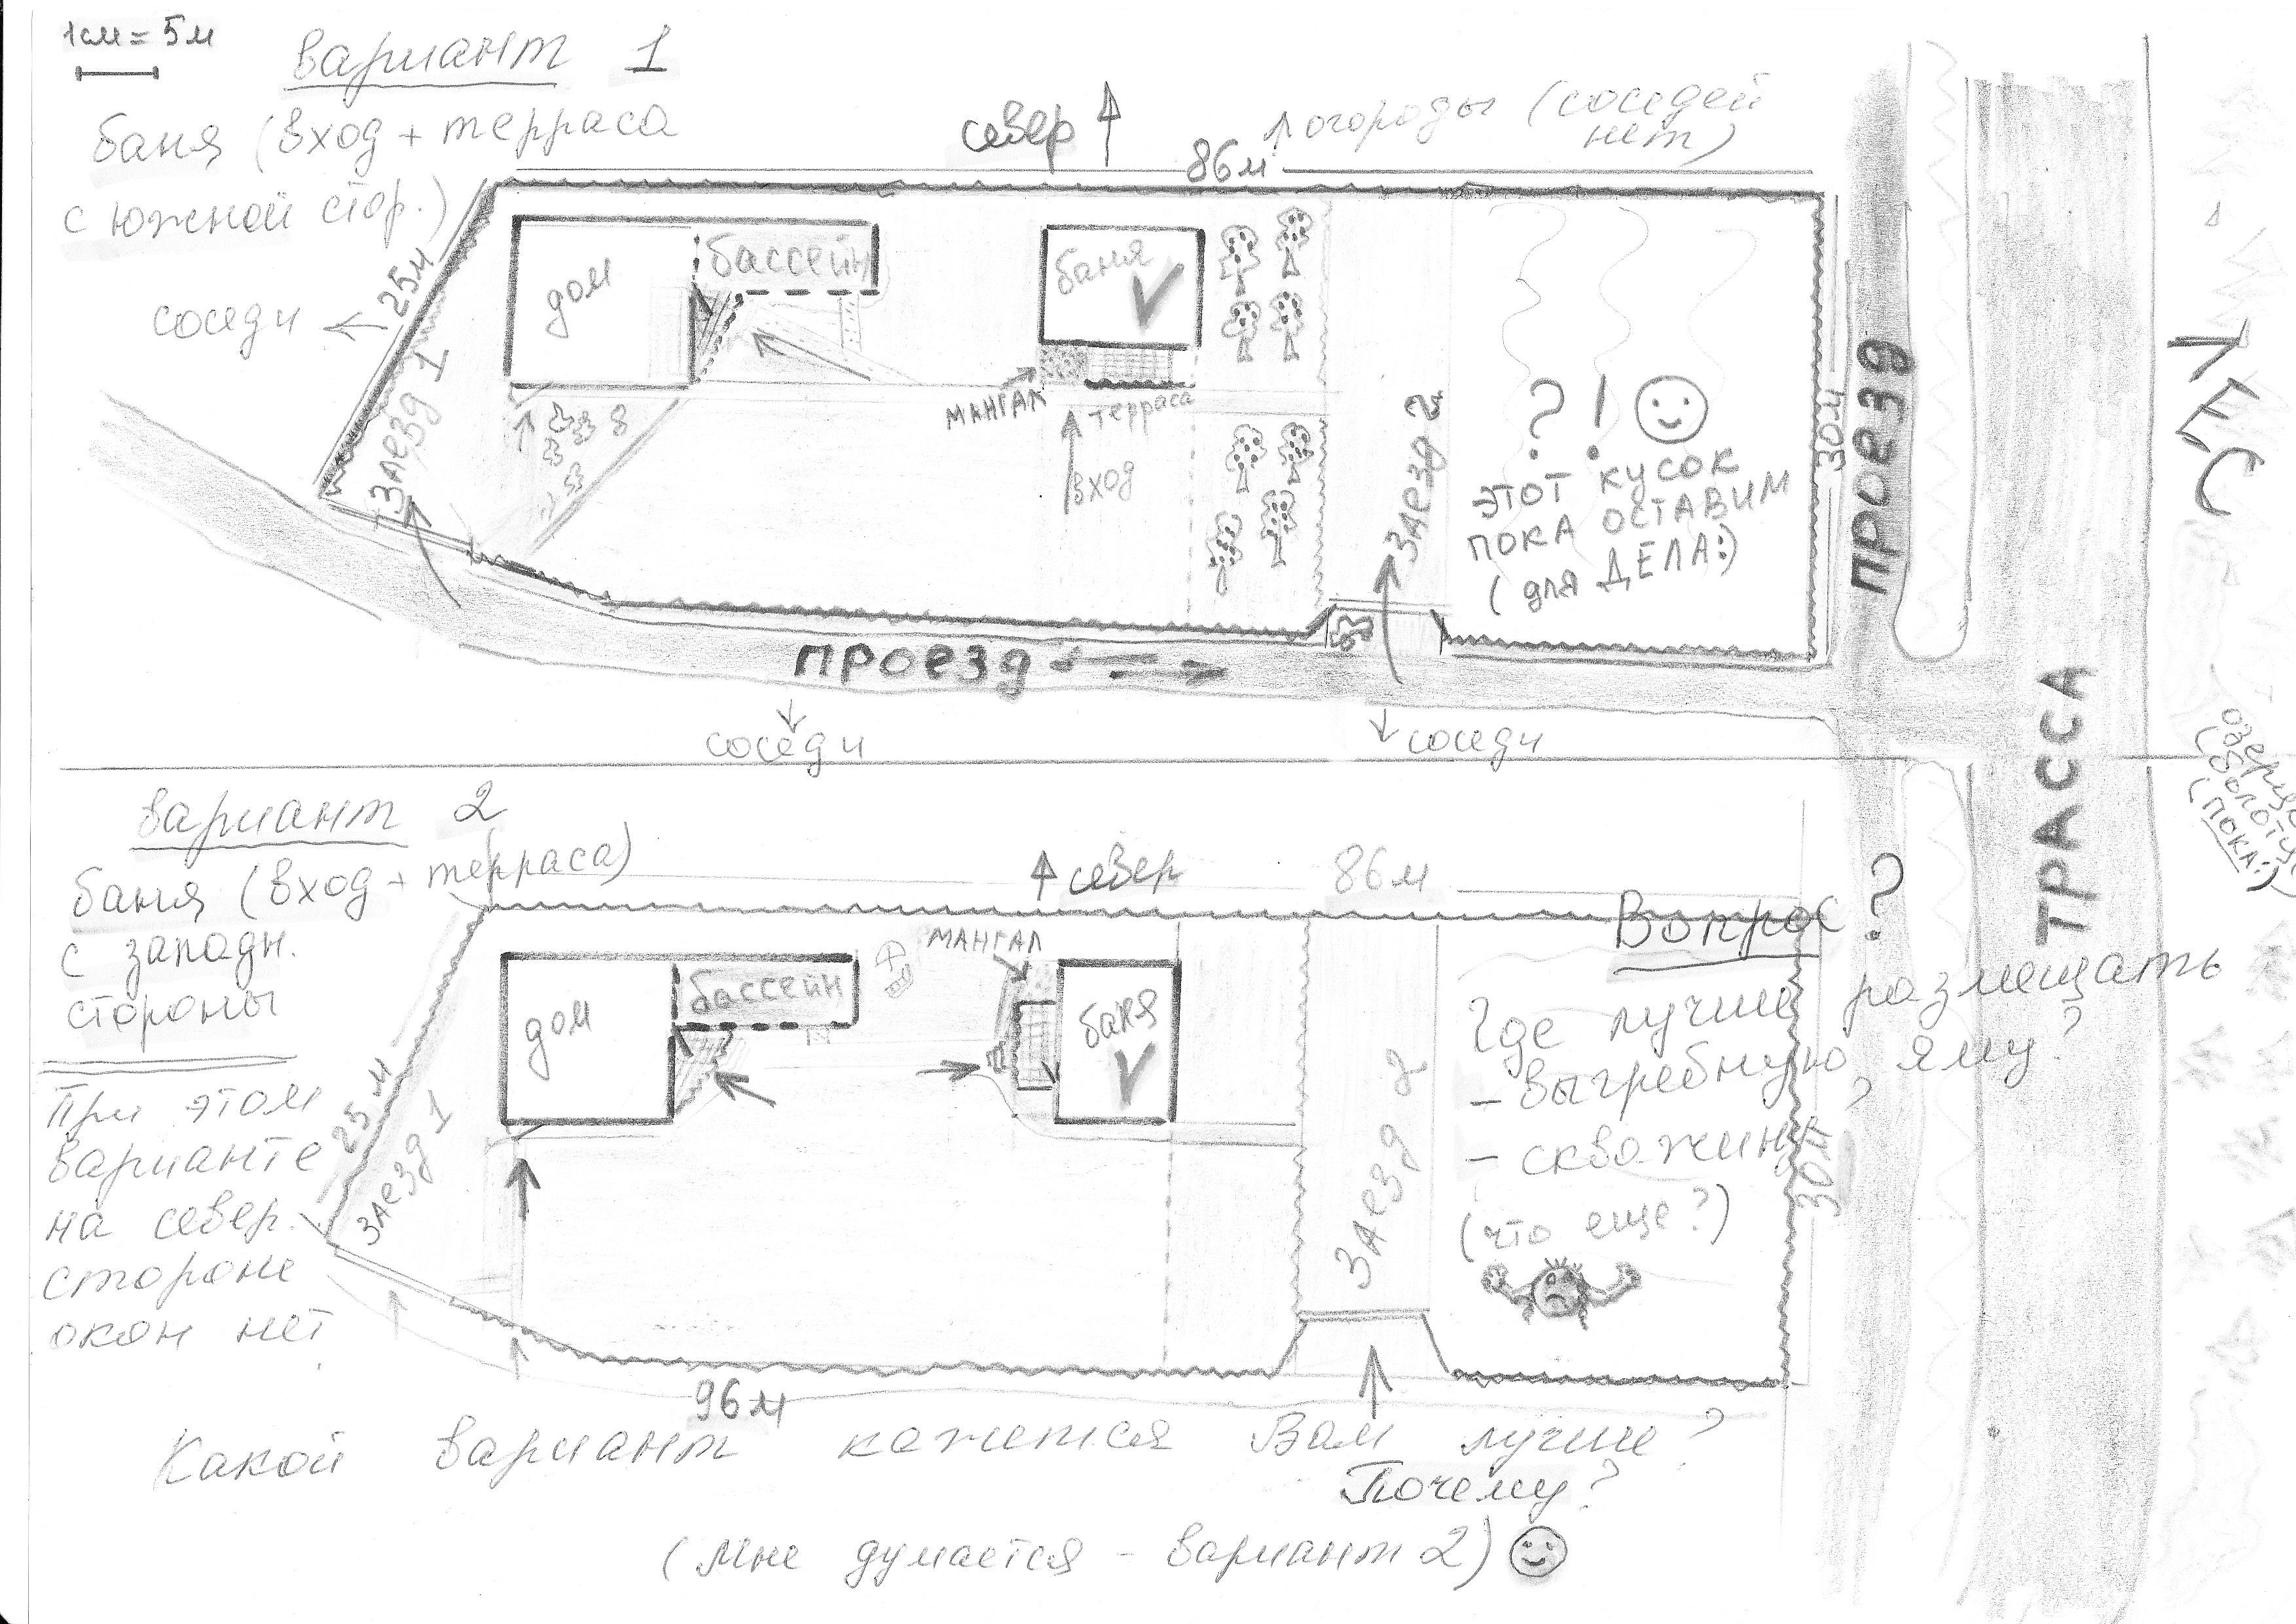 1см = 5м
вариант 1
баня (вход + терраса
с южной стор.)
север
огороды (соседей
нет)
86м
25м
соседи
заезд 1
дом
бассейн
баня
мангал
терраса
вход
заезд 2
? !
этот кусок
пока оставим
(для ДЕЛА:)
30м
проезд
ЛЕС
проезд
соседи
соседи
ТРАССА
(пока:)
вариант 2
баня (вход + терраса)
с западн.
стороны
При этом
варианте
на север.
стороне
окон нет
север
86м
25м
заезд 1
дом
бассейн
мангал
баня
заезд 2
30м
96м
Вопрос ?
Где лучше размещать
- выгребную яму?
- скважину?
(что еще?)
Какой вариант кажется Вам лучше?
Почему?
(Мне думается - вариант 2)